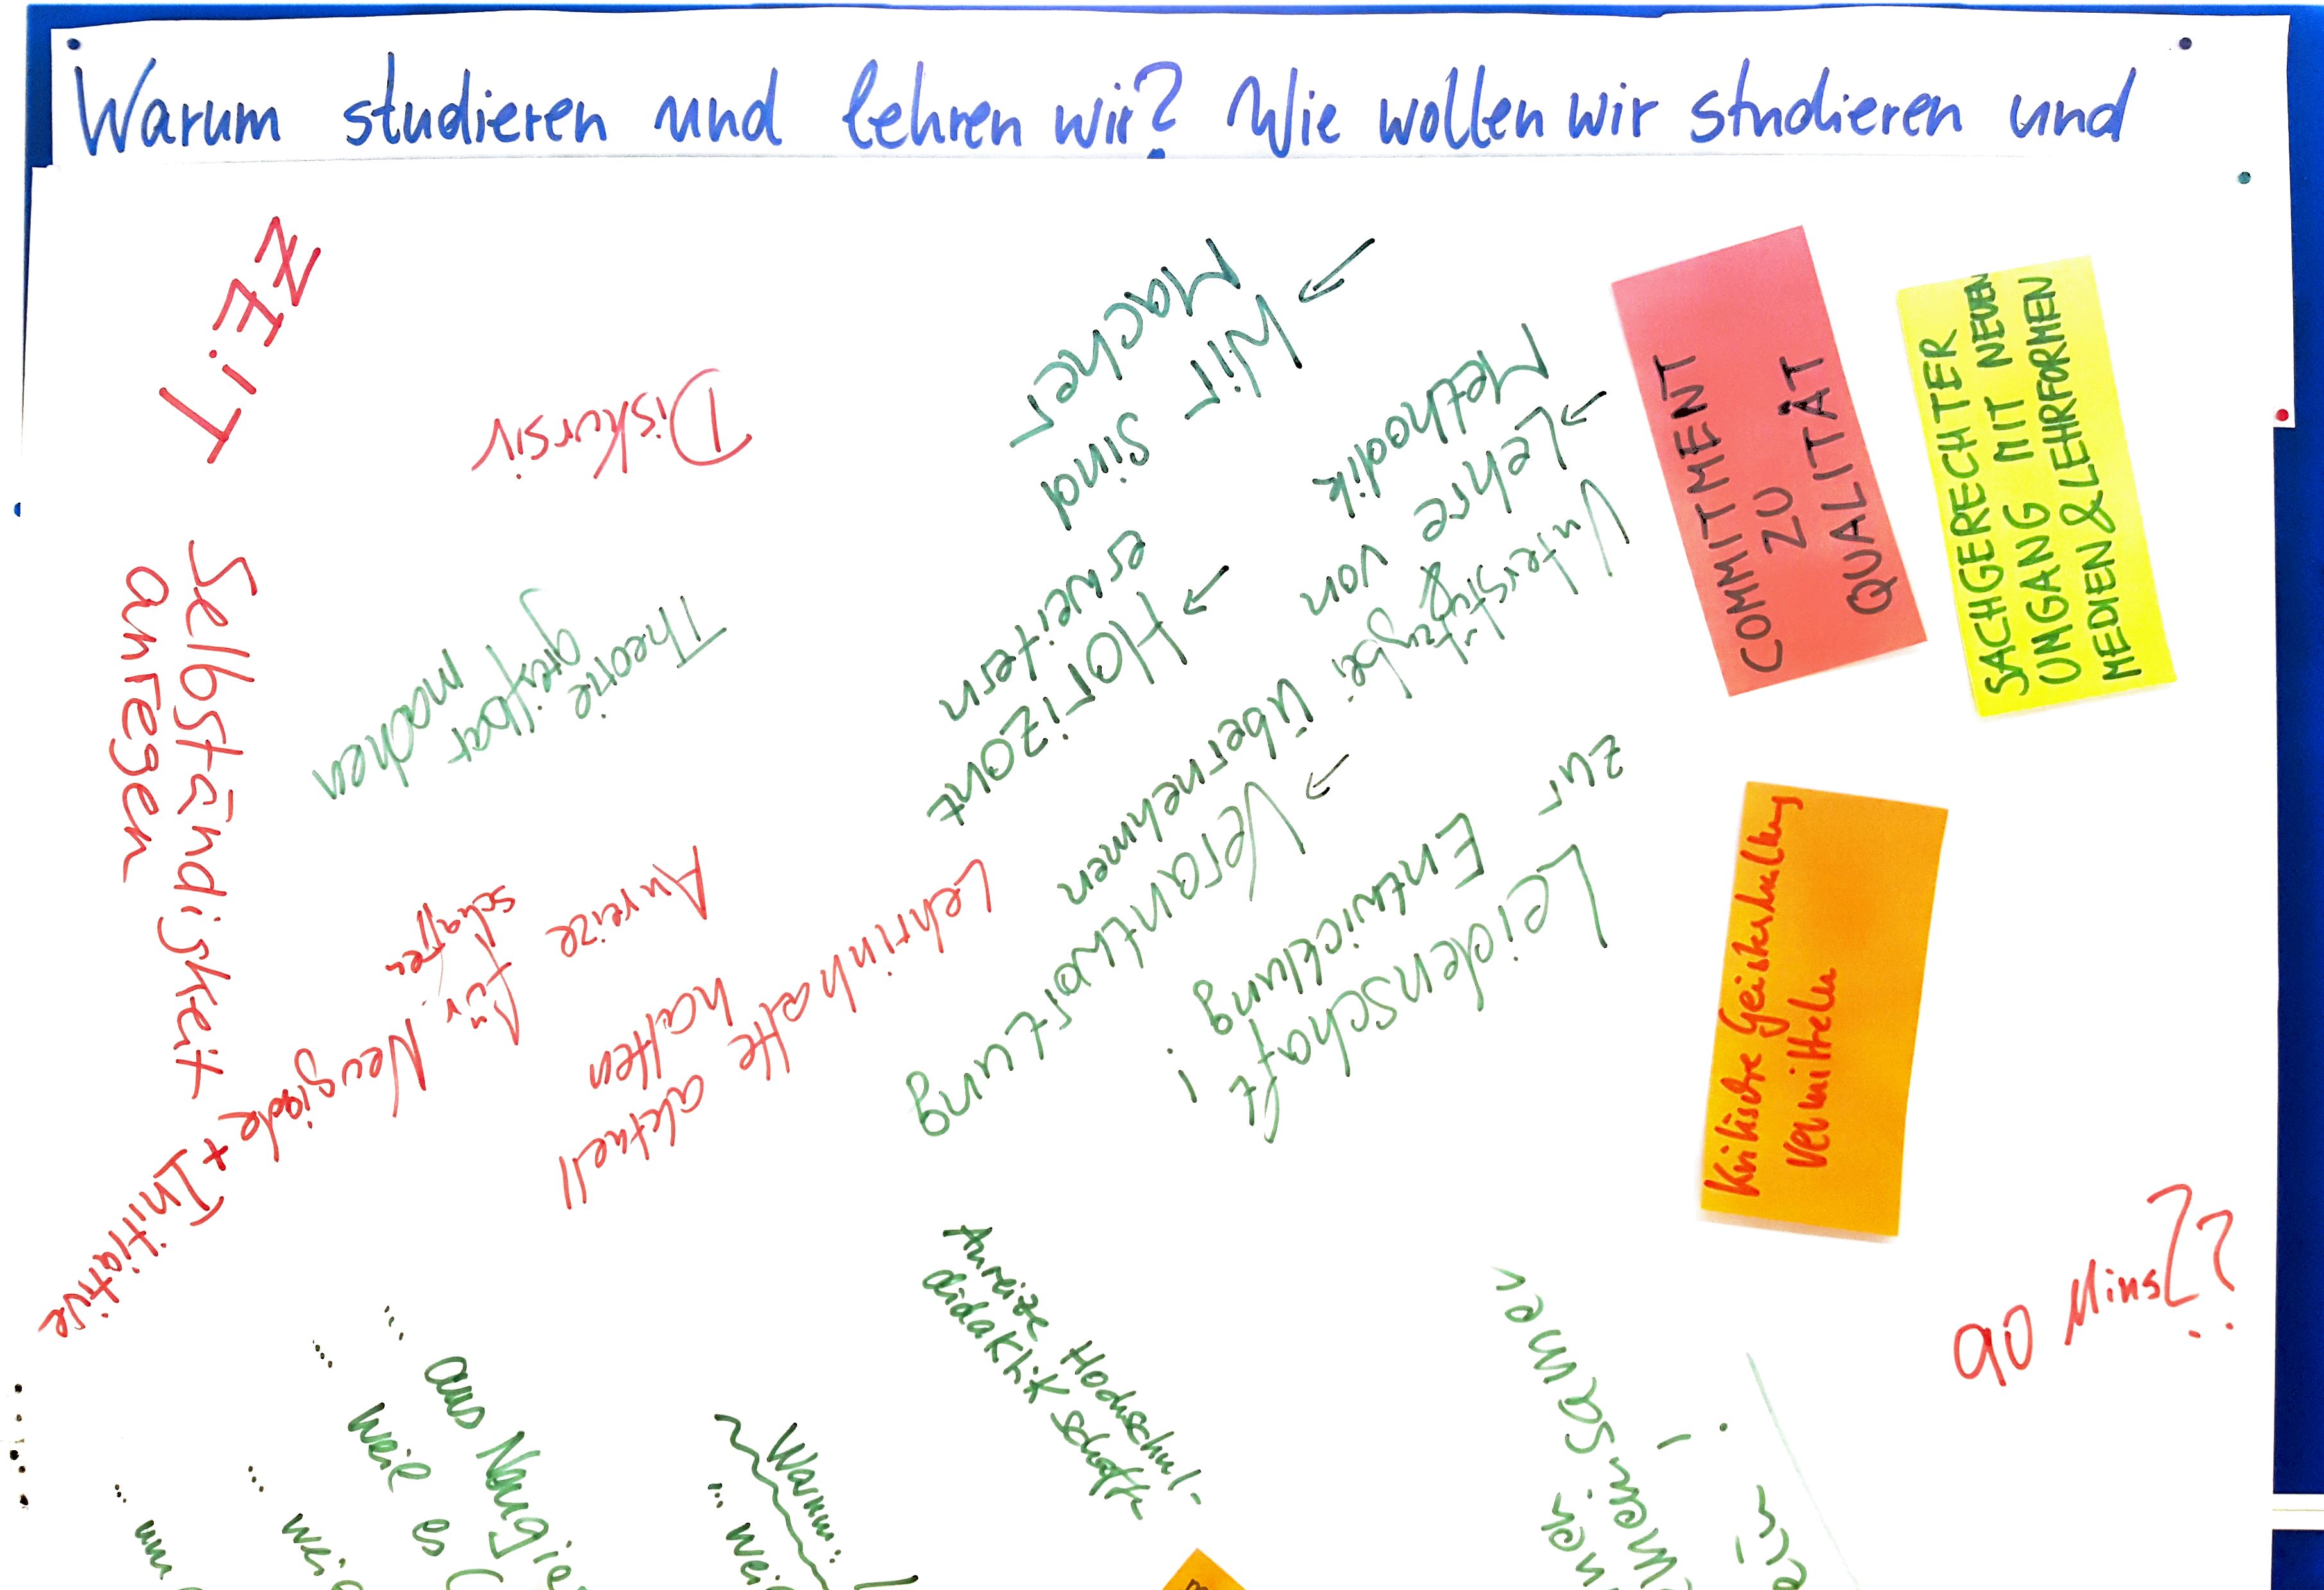 Warum studieren und lehren wir? Wie wollen wir studieren und
ZEiT
Diskursiv
Wir sind
Macher
Lehre von
Methodik
Unterstützg
&
COMMITMENT
ZU
QUALITÄT
SACHGERECHTER
UMGANG MIT NEUEN
MEDIEN & LEHRFORMEN
Selbständigkeit
anregen
Theorie
greifbar
machen
Horizont
erweitern
Verantwortung
übernehmen
Leidenschaft
zur
Entwicklung
!
Anreize
für Neugierde + Initiative
schaffen
Lehrinhalte
aktuell
halten
Kritische Geisteshaltung
vermitteln
90 Mins??
Anreize Hochschul-
didaktik schafft
aus Neugie
weil es
Warum...
... wei